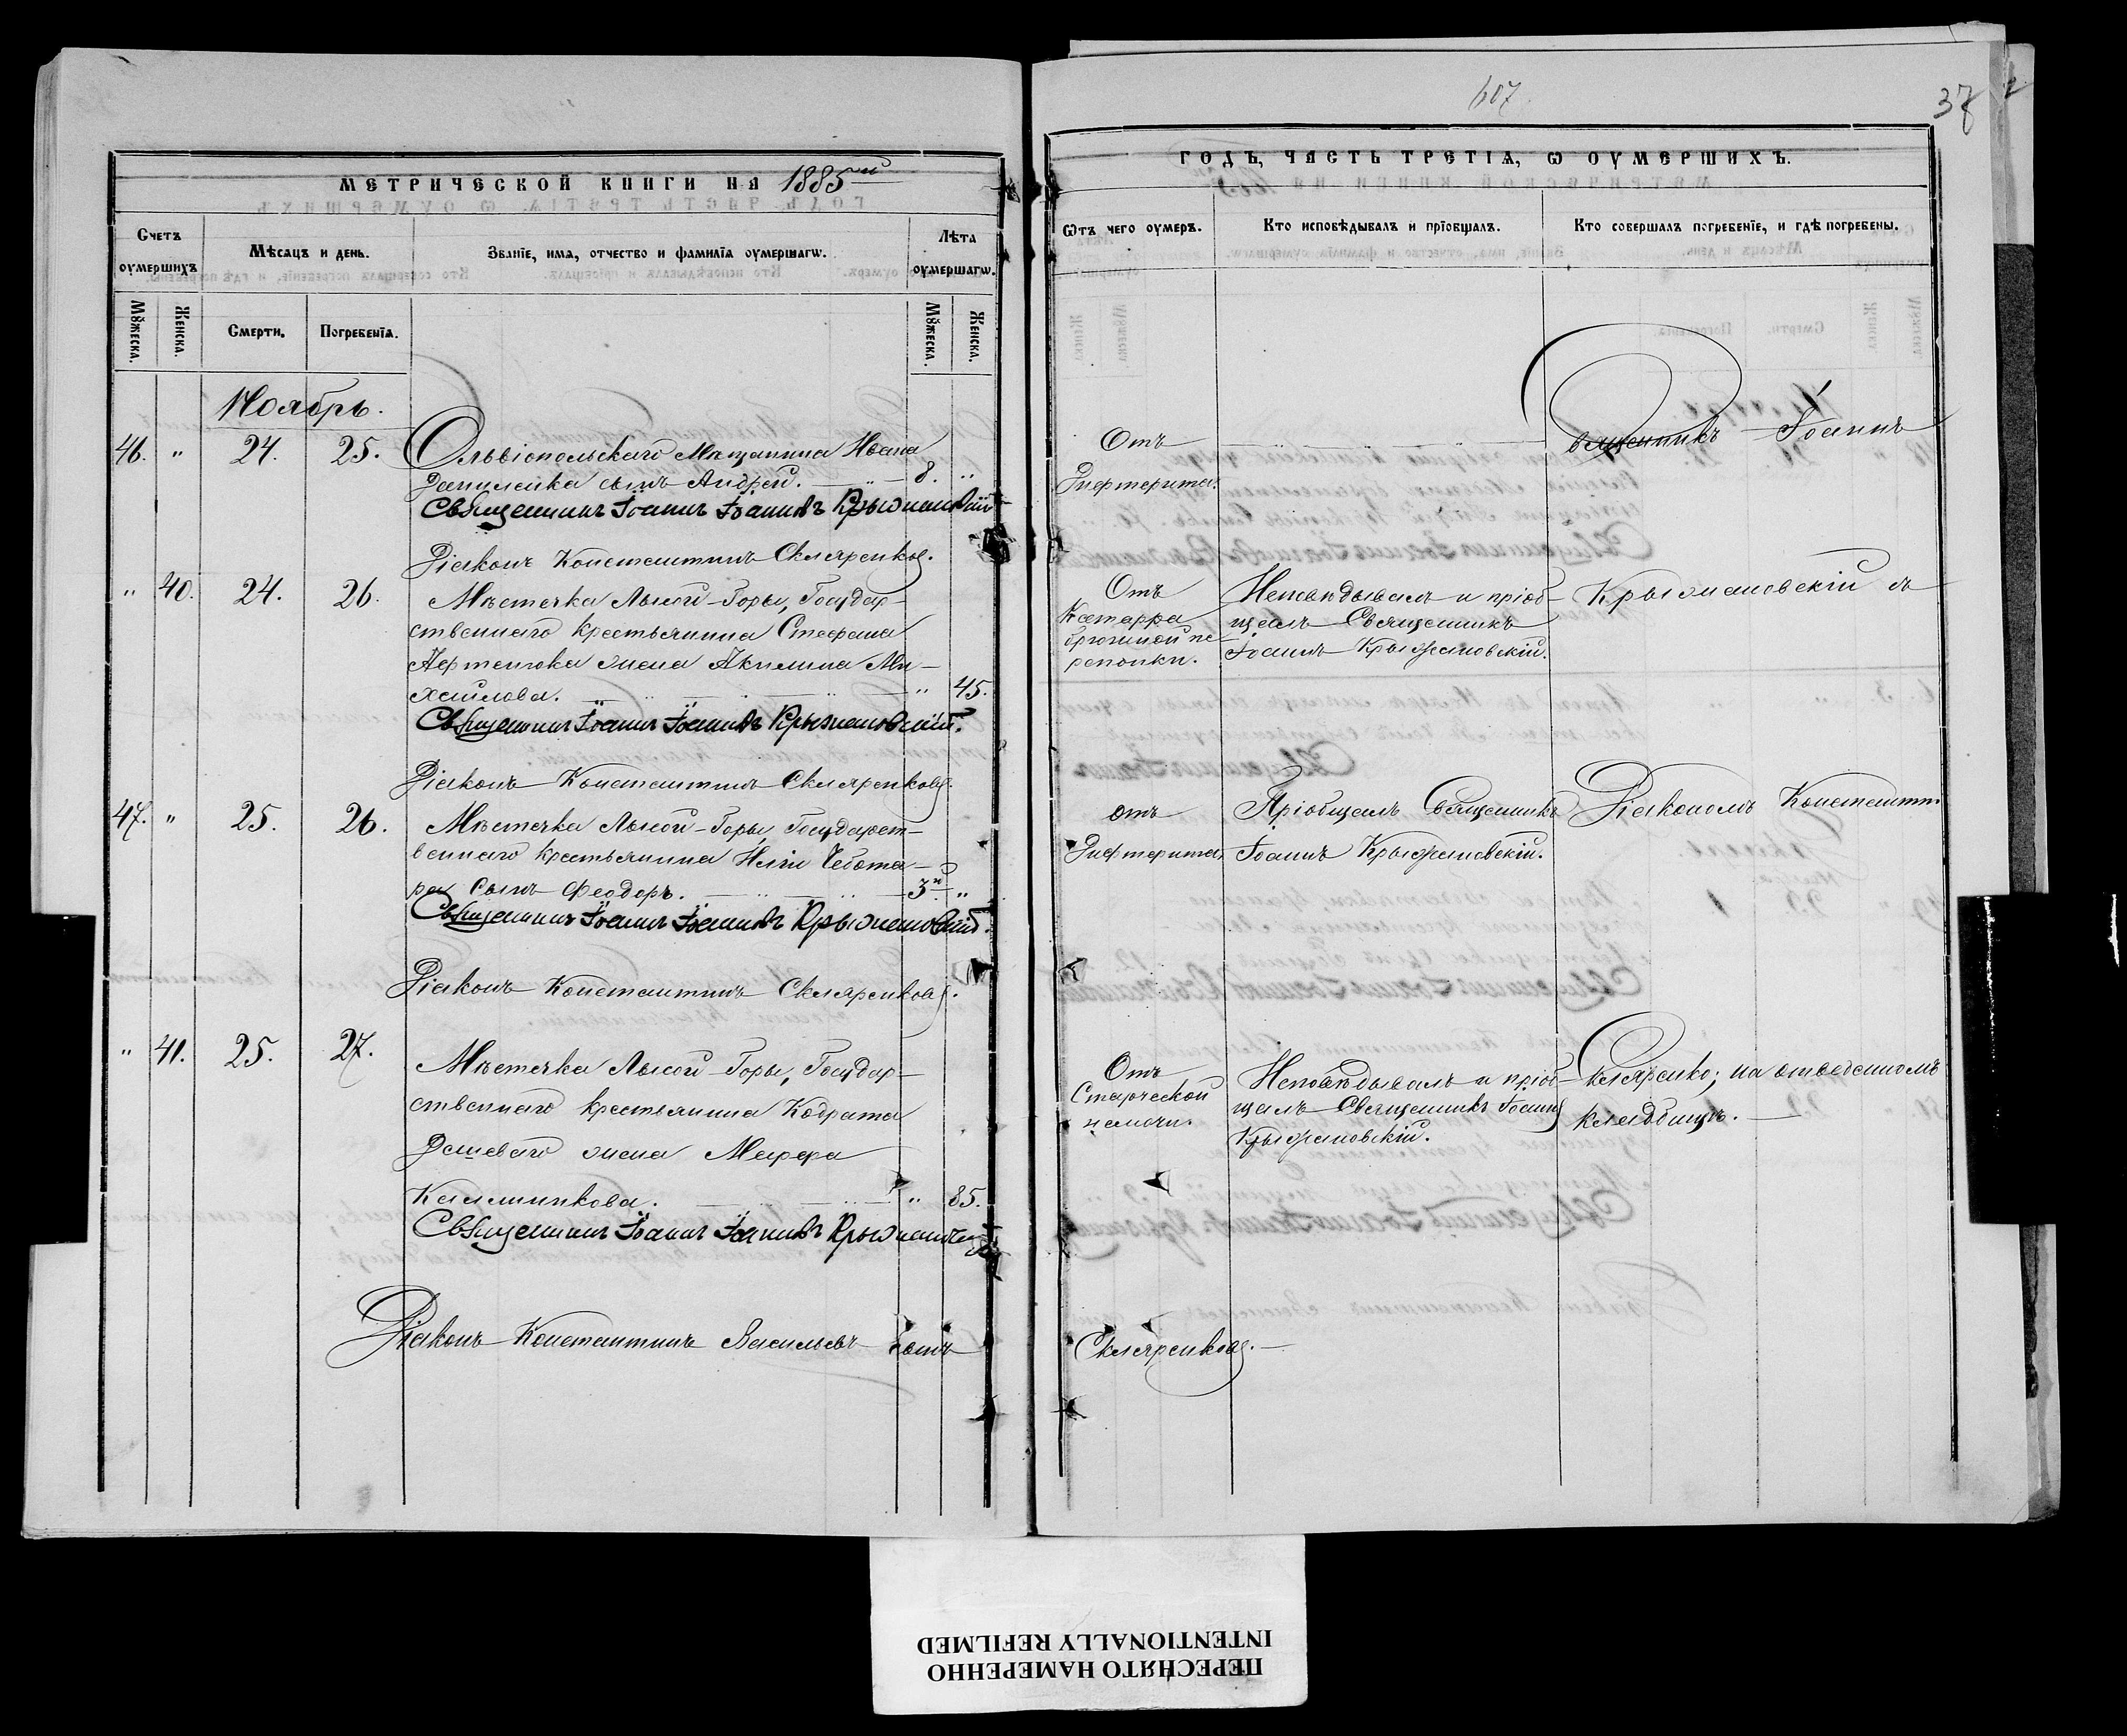 МЕТРИЧЕСКОЙ КНИГИ НА 1885й
Счетъ
оумершихъ
Мѣсяцъ и день.
Званіе, имя, отчество и фамилія оумершагѡ.
Лѣта
оумершагѡ.
Мꙋжеска.
Женска.
Смерти.
Погребенія.
Мꙋжеска.
Женска.
Ноябрь.
46. " 24. 25. Ольвіопольскаго Мѣщанина Ивана
сынъ Андрей. 8. "
Священникъ Іоаннъ Іоанновъ Крыжановскій
Діаконъ Константинъ Скляренковъ.
" 40. 24. 26. Мѣстечка Лысой-Горы, Государ-
ственнаго крестьянина Стефана
жена Акилина Ми-
хайлова. " 45.
Священникъ Іоаннъ Іоанновъ Крыжановскій.
Діаконъ Константинъ Скляренковъ.
47. " 25. 26. Мѣстечка Лысой-Горы, Государст-
веннаго крестьянина Иліи Чебота-
ря сынъ Феодоръ. 3й "
Священникъ Іоаннъ Іоанновъ Крыжановскій.
Діаконъ Константинъ Скляренковъ.
" 41. 25. 27. Мѣстечка Лысой-Горы, Государ-
ственнаго крестьянина Кодрата
жена Марфа
Калинникова. " 85.
Священникъ Іоаннъ Іоанновъ Крыжановскій
Діаконъ Константинъ Васильевъ сынъ
607
37
ГОДЪ, ЧАСТЬ ТРЕТІЯ, Ѡ ОУМЕРШИХЪ.
Ѿтъ чего оумеръ.
Кто исповѣдывалъ и пріобщалъ.
Кто совершалъ погребеніе, и гдѣ погребены.
Отъ
Дифтерита.
Священникъ Іоаннъ
Отъ
Катарра
брюшной пе-
репонки.
Исповѣдывалъ и пріоб-
щалъ Священникъ
Іоаннъ Крыжановскій.
Крыжановскій съ
отъ
Дифтерита.
Пріобщалъ Священникъ
Іоаннъ Крыжановскій.
Діакономъ Константин.
Отъ
Старческой
немочи.
Исповѣдывалъ и пріоб-
щалъ Священникъ Іоаннъ
Крыжановскій.
Скляренко; на отведенномъ
кладбищѣ.
Скляренковъ.
ПЕРЕСНЯТО НАМЕРЕННО
INTENTIONALLY REFILMED